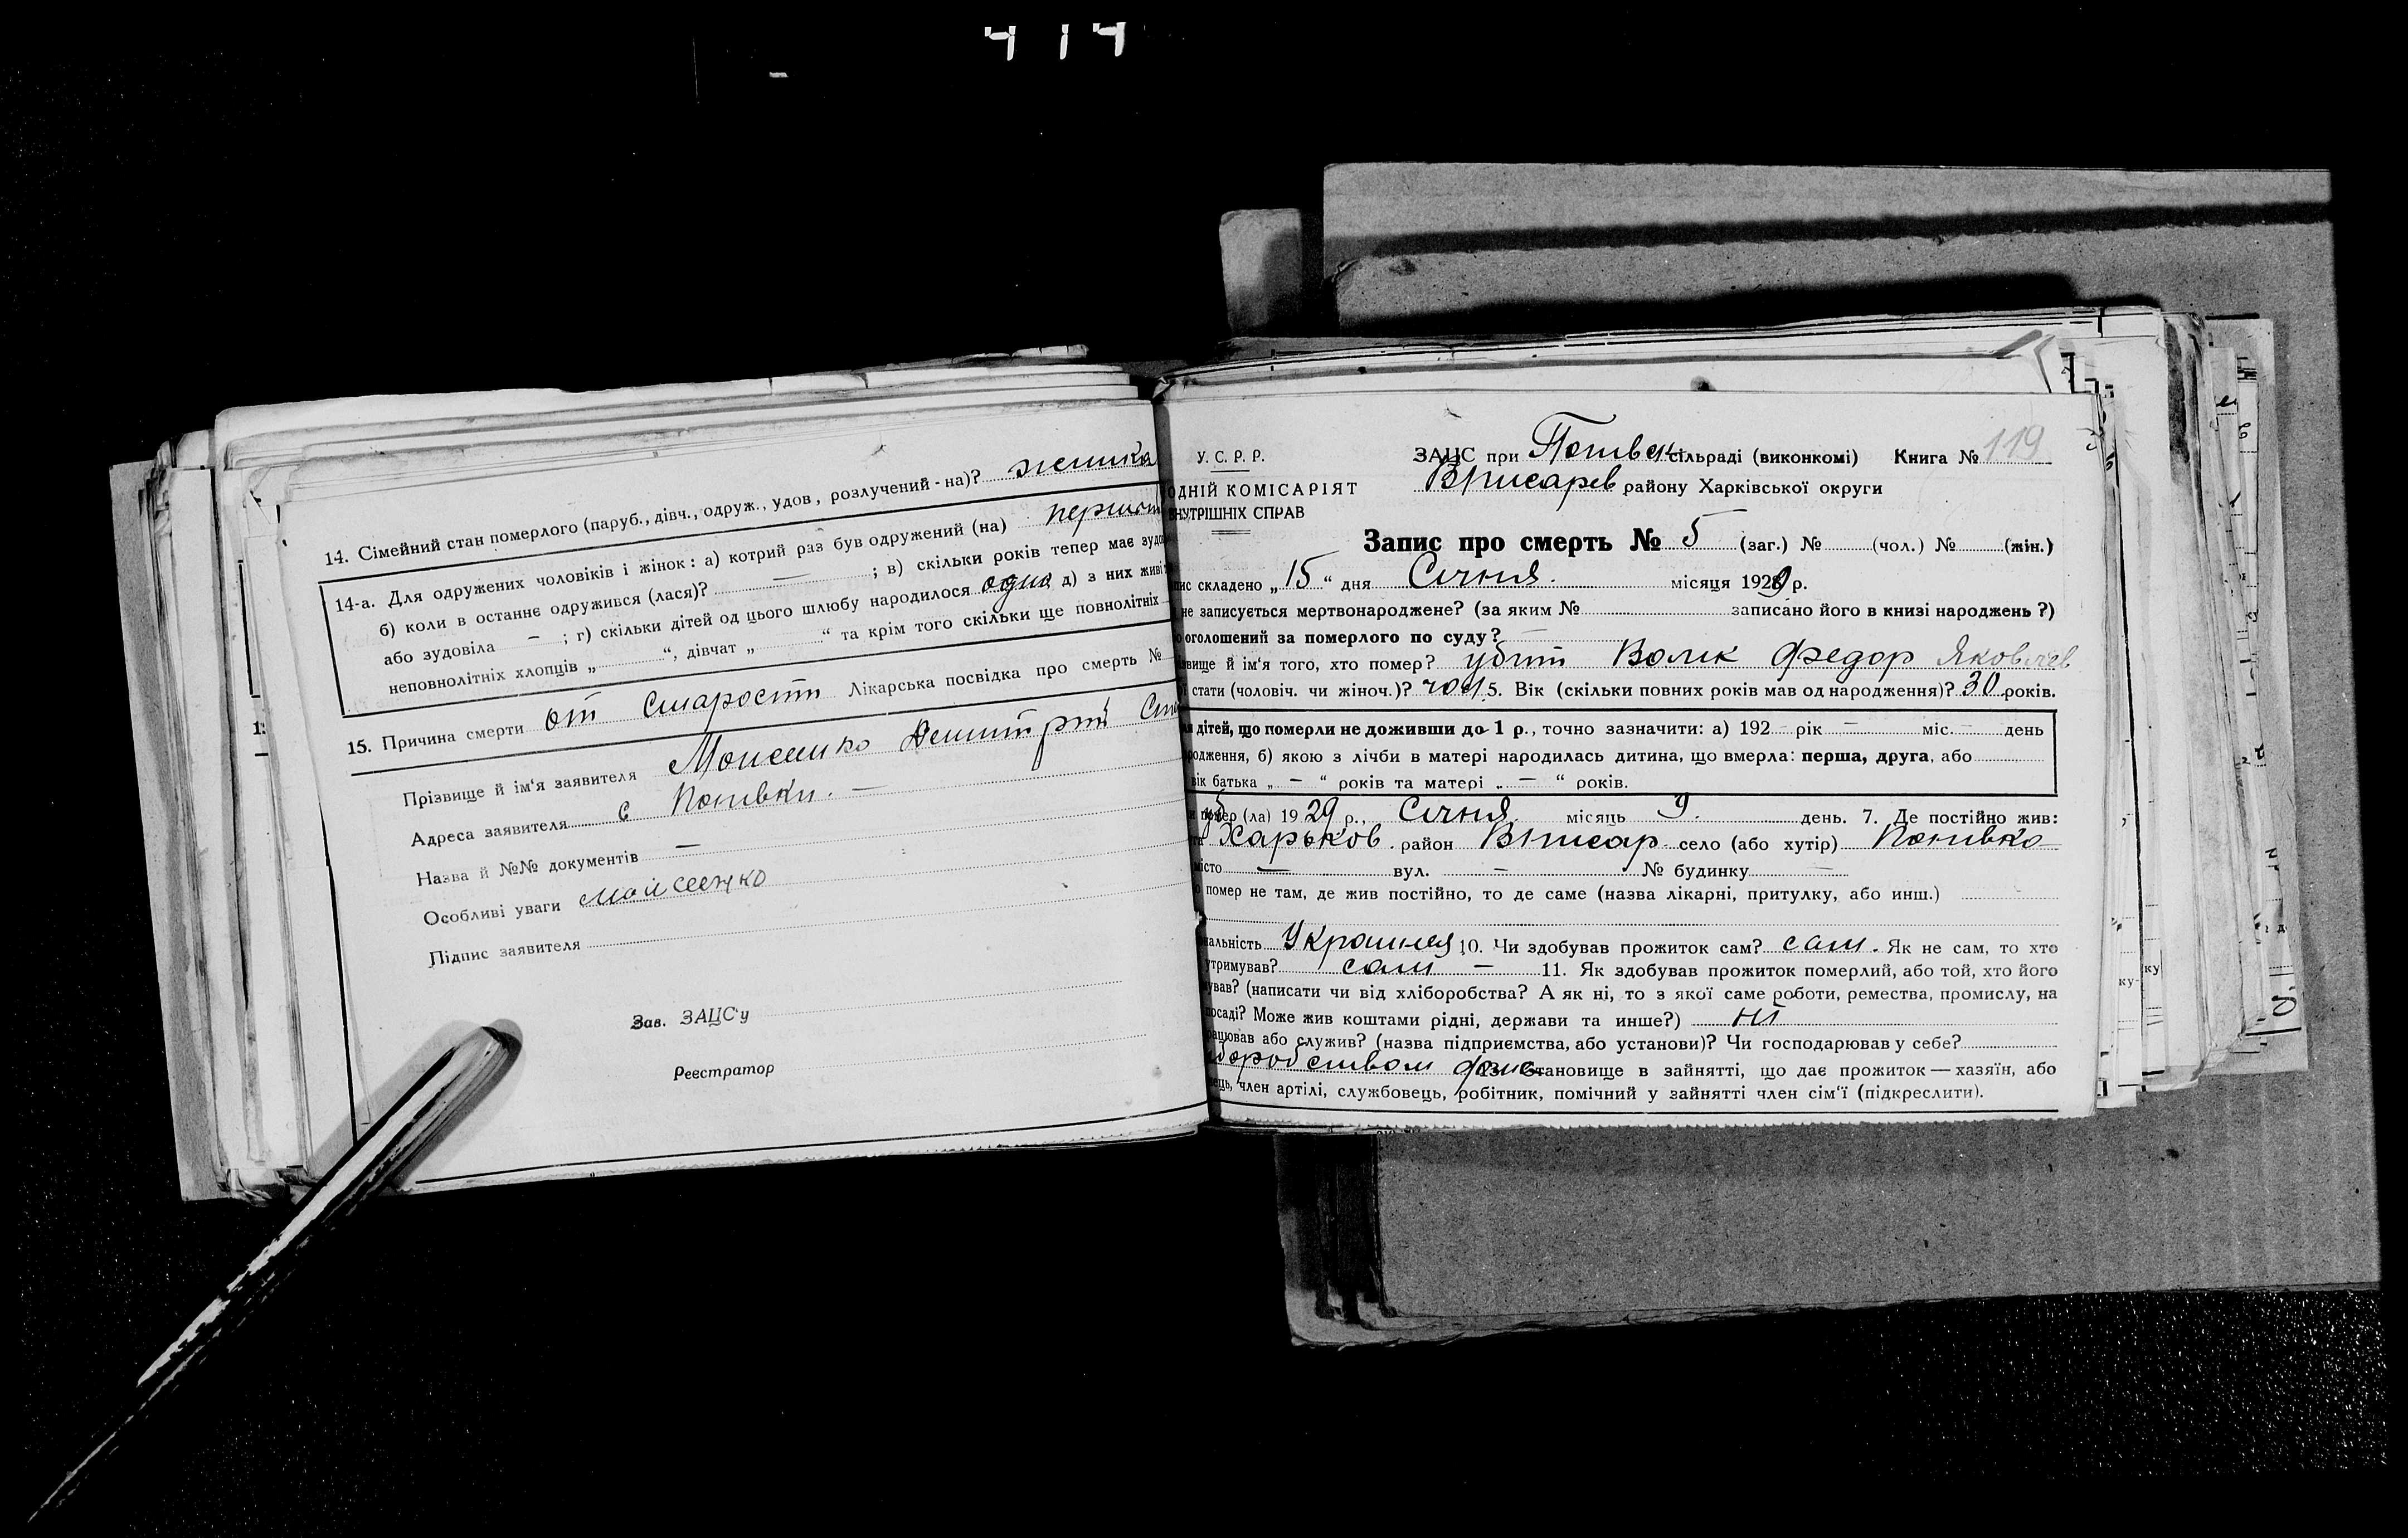 414
14. Сімейний стан померлого (паруб., дівч., одруж., удов., розлучений-на)?
14-а. Для одружених чоловіків і жінок: а) котрий раз був одружений (на)
б) коли в останнє одружився (лася)? — ; в) скільки років тепер має
або зудовіла — ; г) скільки дітей од цього шлюбу народилося один д) з них живі
неповнолітніх хлопців „ “, дівчат „ “ та крім того скільки ще повнолітніх
15. Причина смерти от старости Лікарська посвідка про смерть №
Прізвище й ім'я заявителя
Адреса заявителя с Попивки. —
Назва й №№ документів —
Особливі уваги
Підпис заявителя
Зав. ЗАЦС'у
Реєстратор
У. С. Р. Р.
ОДНІЙ КОМІСАРІЯТ
ВНУТРІШНІХ СПРАВ
ЗАЦС при сільраді (виконкомі) Книга № 119
Вписарев району Харківської округи
Запис про смерть № 5 (заг.) № (чол.) № (жін.)
складено „15“ дня Січня. місяця 1929 р.
не записується мертвонароджене? (за яким № записано його в книзі народжень?)
оголошений за померлого по суду? —
й ім'я того, хто помер? убит Волик Федор Яковлев
стати (чоловіч. чи жіноч.)? чол 5. Вік (скільки повних років мав од народження)? 30 років.
дітей, що померли не доживши до 1 р., точно зазначити: а) 192 — рік — міс. — день
б) якою з лічби в матері народилась дитина, що вмерла: перша, друга, або
вік батька „ — “ років та матері „ — “ років.
(ла) 1929 р., Січня місяць 9. день. 7. Де постійно жив:
Харьков. район Вписар село (або хутір) Попивка
місто — вул. — № будинку —
помер не там, де жив постійно, то де саме (назва лікарні, притулку, або инш.)
10. Чи здобував прожиток сам? сам. Як не сам, то хто
утримував? сам — 11. Як здобував прожиток померлий, або той, хто його
(написати чи від хліборобства? А як ні, то з якої саме роботи, ремества, промислу, на
посаді? Може жив коштами рідні, держави та инше?) ні
або служив? (назва підприємства, або установи)? Чи господарював у себе?
становище в зайнятті, що дає прожиток — хазяїн, або
член артілі, службовець, робітник, помічний у зайнятті член сім'ї (підкреслити).